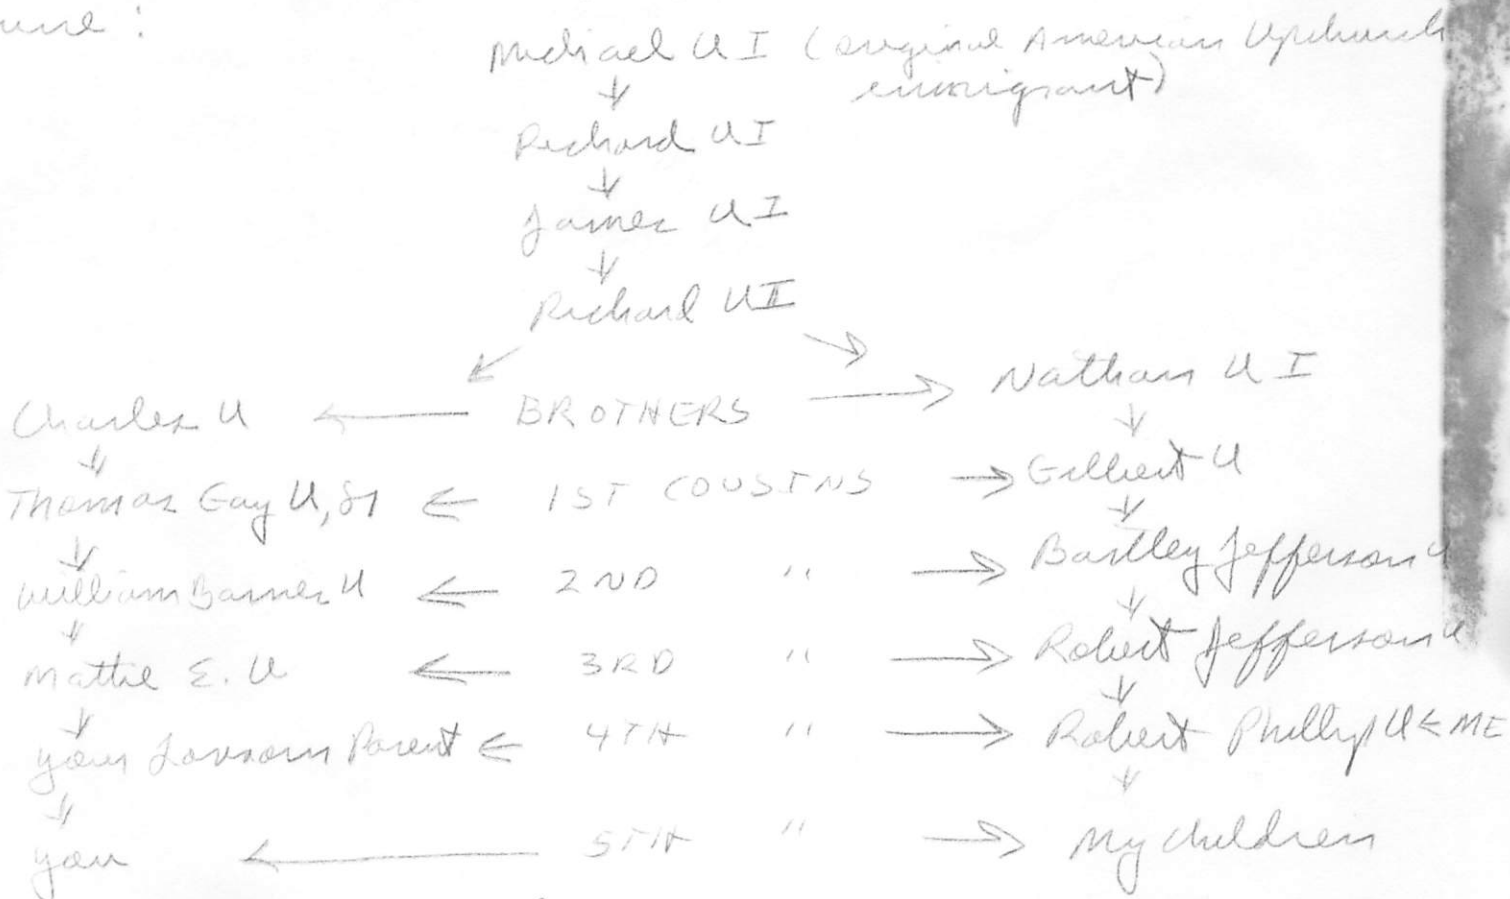 Michael U I (original American Upchurch
immigrant)
Richard U I
James U I
Richard U II
Charles U ← BROTHERS → Nathan U I
Thomas Gay U, Sr ← 1ST COUSINS → Gilbert U
William Barnes U ← 2ND " → Bartley Jefferson U
Mattie E. U ← 3RD " → Robert Jefferson U
your Parent ← 4TH " → Robert Phillip U ← ME
you ← 5TH " → My children